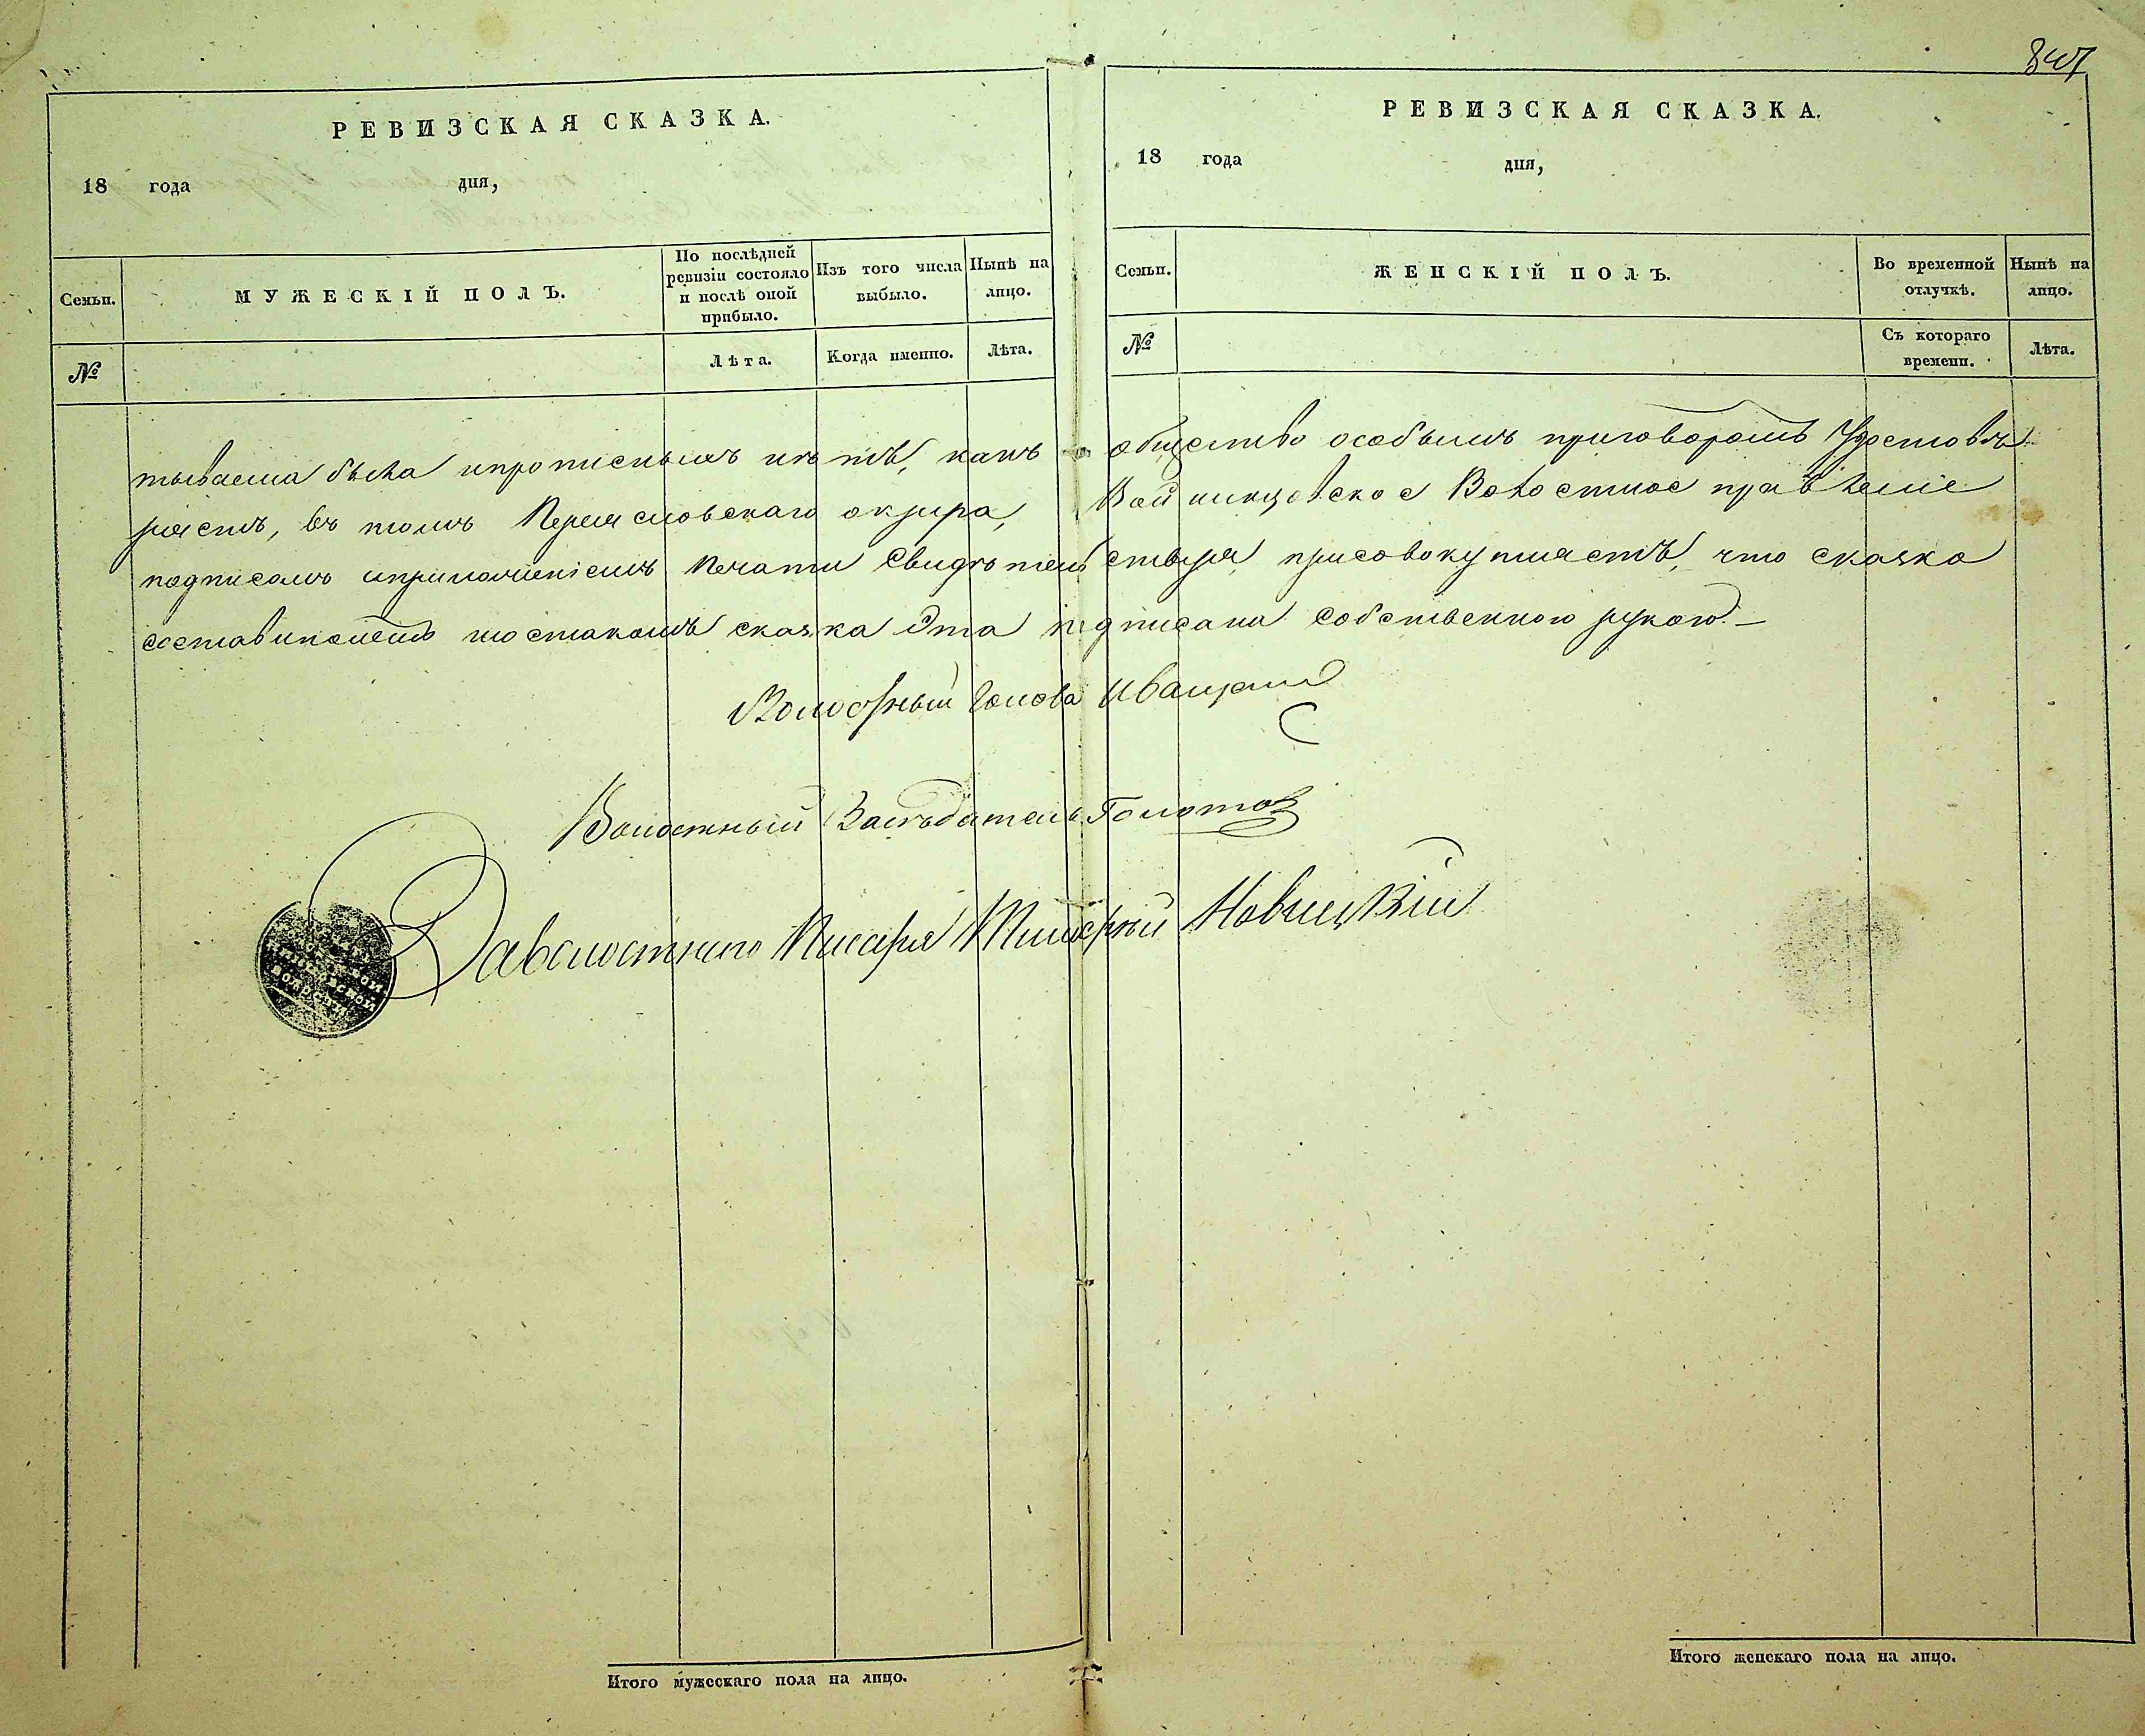 847
РЕВИЗСКАЯ СКАЗКА.
18 года дня,
Семьи.
МУЖЕСКІЙ ПОЛЪ.
По послѣдней ревизіи состояло и послѣ оной прибыло.
Изъ того числа выбыло.
Нынѣ на лицо.
№
Лѣта.
Когда именно.
Лѣта.
РЕВИЗСКАЯ СКАЗКА.
18 года дня,
Семьи.
ЖЕНСКІЙ ПОЛЪ.
Во временной отлучкѣ.
Нынѣ на лицо.
№
Съ котораго времени.
Лѣта.
тываема была ипрописныхъ нѣтъ, какъ общество особымъ приговоромъ Удостовѣ
ряетъ, въ томъ Переясловскаго округа, Войнинцовское Волостное правленіе
подписомъ иприложеніемъ Печати Свидѣтельствуя присовокупляетъ, что сказка
составителемъ сказка Эта подписана собственною рукою.—
Волостный Голова Иващенко
Волостный Засѣдатель Голота
За волостнаго Писаря Новицкій
ВОЛОСТИ
Итого мужескаго пола на лицо.
Итого женскаго пола на лицо.